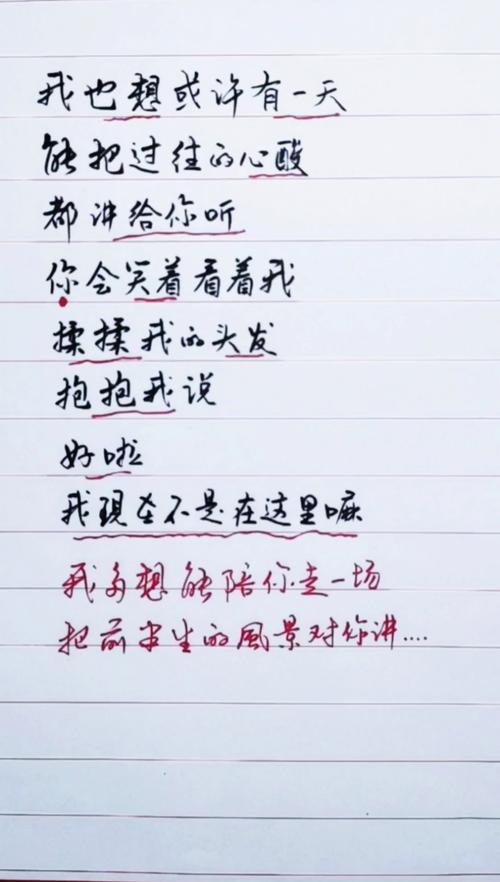 我也想或许有一天
能把过往的心酸
都讲给你听
你会笑着看着我
揉揉我的头发
抱抱我说
好啦
我現在不是在这里嘛
我多想能陪你走一场
把前半生的風景对你讲....